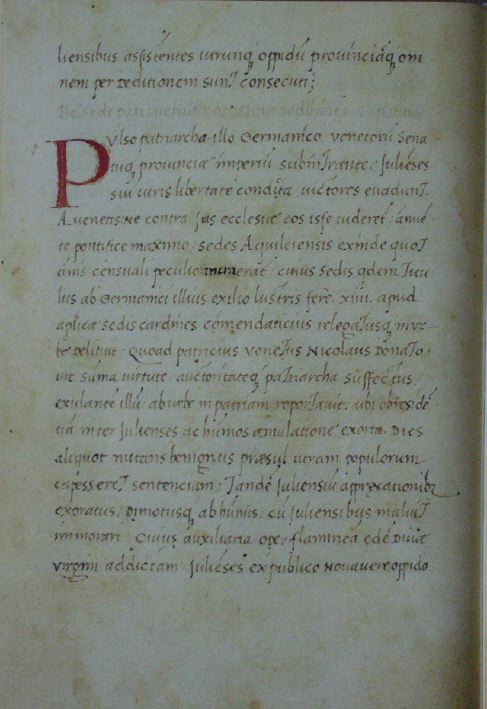 liensibus assistentes utrunq̃ oppidũ prouinciãq̃ om
nem per deditionem sunt consecuti;
De sede patriarchali
Pulso patriarcha illo Germanico, uenetorũ Sena
tuq̃ prouinciæ imperiũ subintrante: Juliẽses
sui iuris libertate condita uictores euadunt
A uenetis: Ne contra ius ecclesiæ eos isse uideret: annuẽ
te pontifice maximo, sedes Aquileiensis exinde quot
annis censuali peculio erat: cuius sedis qdem Titu
lus ab Germanici illius exilio lustris fere .xiiii. apud
aplicæ sedis cardines comendaticius relegatusq̃ in ue
te delituit: Quoad patricius uenetus Nicolaus Donato,
uir suma uirtute, auctoritateq̃ patriarcha suffectus,
exulante illũ ab urbe in patriam reportauit: ubi ob residẽ
tiã inter Julienses ac hunos æmulatione exorta. Dies
aliquot nutans benignus præsul utram populorum
capesseret sententiam: Tandẽ Juliensiũ apprecationibꝫ
exoratus, Dimotusq̃ ab hunis, cũ Juliensibus maluit
immorari: Cuius auxiliaria ope, flaminea ędẽ Diuæ
virgini addictam Juliẽses ex publico Nouauere oppido